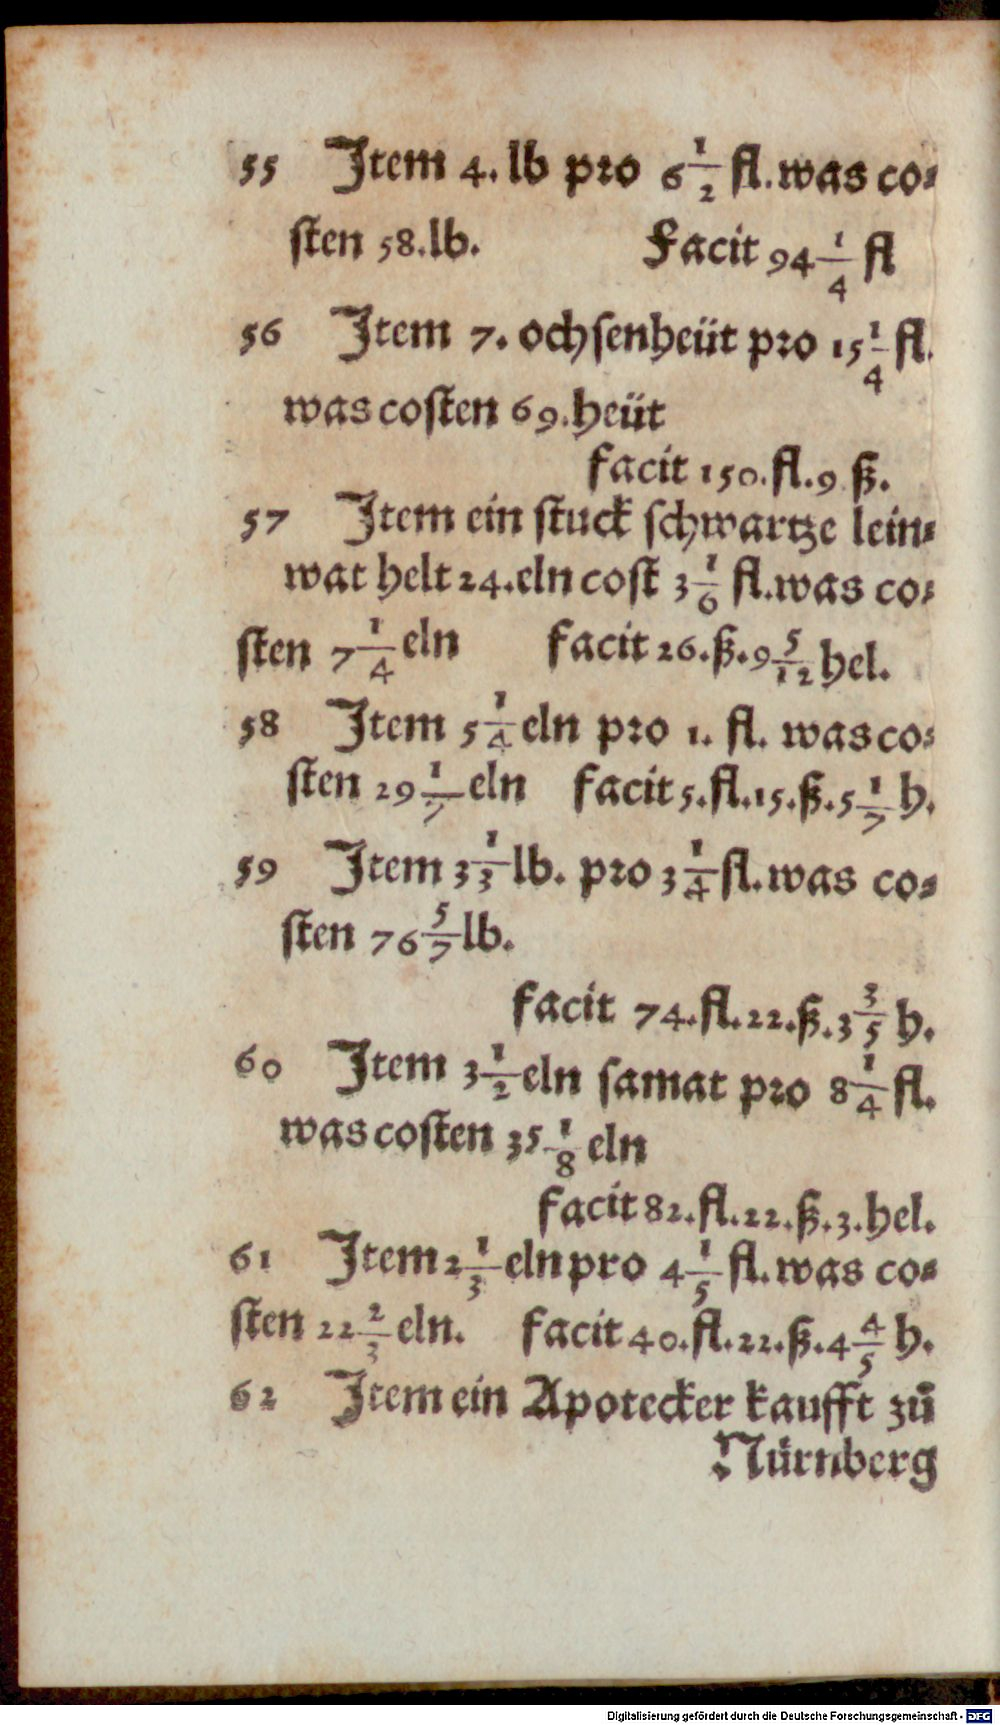 55 Item 4. lb pro 6 1/2 fl. was co⸗
sten 58. lb. Facit 94 1/4 fl
56 Item 7. ochsenheüt pro 15 1/4 fl.
was costen 69. heüt
facit 150. fl. 9 ß.
57 Item ein stuck schwartze lein⸗
wat helt 24. eln cost 3 1/6 fl. was co⸗
sten 7 1/4 eln facit 26. ß. 9 5/12 hel.
58 Item 5 1/4 eln pro 1. fl. was co⸗
sten 29 1/7 eln facit 5. fl. 15. ß. 5 1/7 h.
59 Item 3 1/3 lb. pro 3 1/4 fl. was co⸗
sten 76 5/7 lb.
facit 74. fl. 22. ß. 3 3/5 h.
60 Item 3 1/2 eln samat pro 8 1/4 fl.
was costen 35 1/8 eln
facit 82. fl. 22. ß. 3. hel.
61 Item 2 1/3 eln pro 4 1/5 fl. was co⸗
sten 22 2/3 eln. facit 40. fl. 22. ß. 4 4/5 h.
62 Item ein Apotecker kaufft zů
Nürnberg
Digitalisierung gefördert durch die Deutsche Forschungsgemeinschaft - DFG